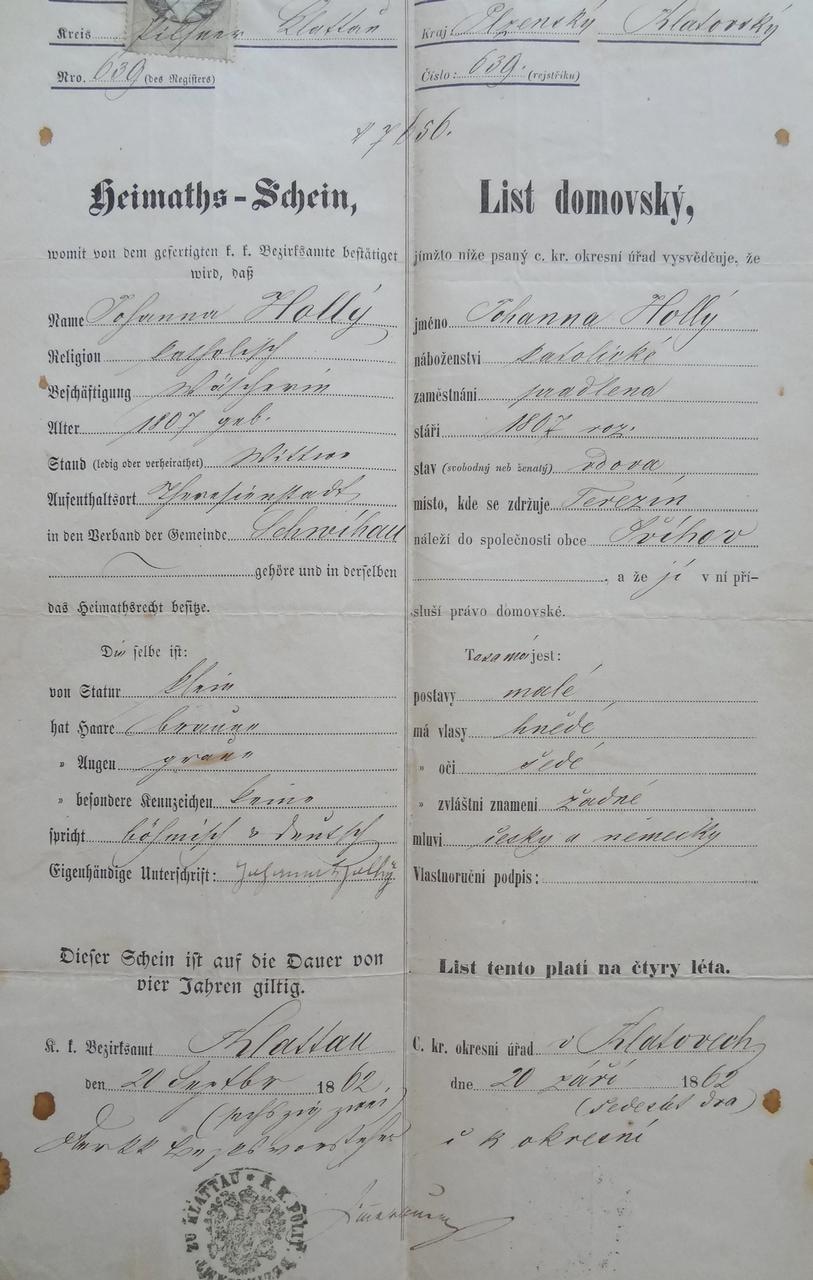 Kreis Pilsner Klattau
Nro. 639 (des Registers)
Kraj: Plzenský Klatovský
Číslo: 639. (rejstříku)
Heimaths-Schein,
womit von dem gefertigten k. k. Bezirksamte bestätiget
wird, daß
Name Johanna Hollý
Religion katholisch
Beschäftigung Wäscherin
Alter 1807 geb.
Stand (ledig oder verheirathet) Wittwe
Aufenthaltsort Theresienstadt
in den Verband der Gemeinde Schwihau
gehöre und in derselben
das Heimathsrecht besitze.
Die selbe ist:
von Statur klein
hat Haare braune
" Augen graue
" besondere Kennzeichen keine
spricht böhmisch & deutsch
Eigenhändige Unterschrift: Johanna Hollý
Dieser Schein ist auf die Dauer von
vier Jahren giltig.
K. k. Bezirksamt Klattau
den 20 Septbr 1862.
(sechszig zwei)
Der kk Bezksvorsteher
ZU KLATTAU * K. K. POLIT.
List domovský,
jímžto níže psaný c. kr. okresní úřad vysvědčuje, že
jméno Johanna Hollý
náboženství katolické
zaměstnání pradlena
stáří 1807 roz.
stav (svobodný neb ženatý) vdova
místo, kde se zdržuje Terezín
náleží do společnosti obce Švihov
, a že jí v ní pří-
sluší právo domovské.
Ta samá jest:
postavy malé
má vlasy hnědé
" oči šedé
" zvláštní znamení žádné
mluví česky a německy
Vlastnoruční podpis:
List tento platí na čtyry léta.
C. kr. okresní úřad v Klatovech
dne 20 září 1862
(šedesát dva)
c k okresní